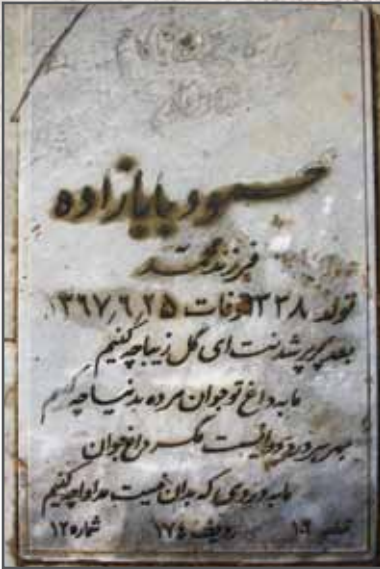 محمود بابازاده
فرزند محمد
تولد ۱۳۳۸ وفات ۱۳۶۷٫۶٫۲۵
بعد پرپر شدنت ای گل زیبا چه کنیم
ما به داغ تو جوان مرده بدنیا چه کنیم
بهر هر درد دوائیست مگر داغ جوان
ما به دردی که بدان نیست مداوا چه کنیم
ردیف ۱۷۴ شماره ۱۲